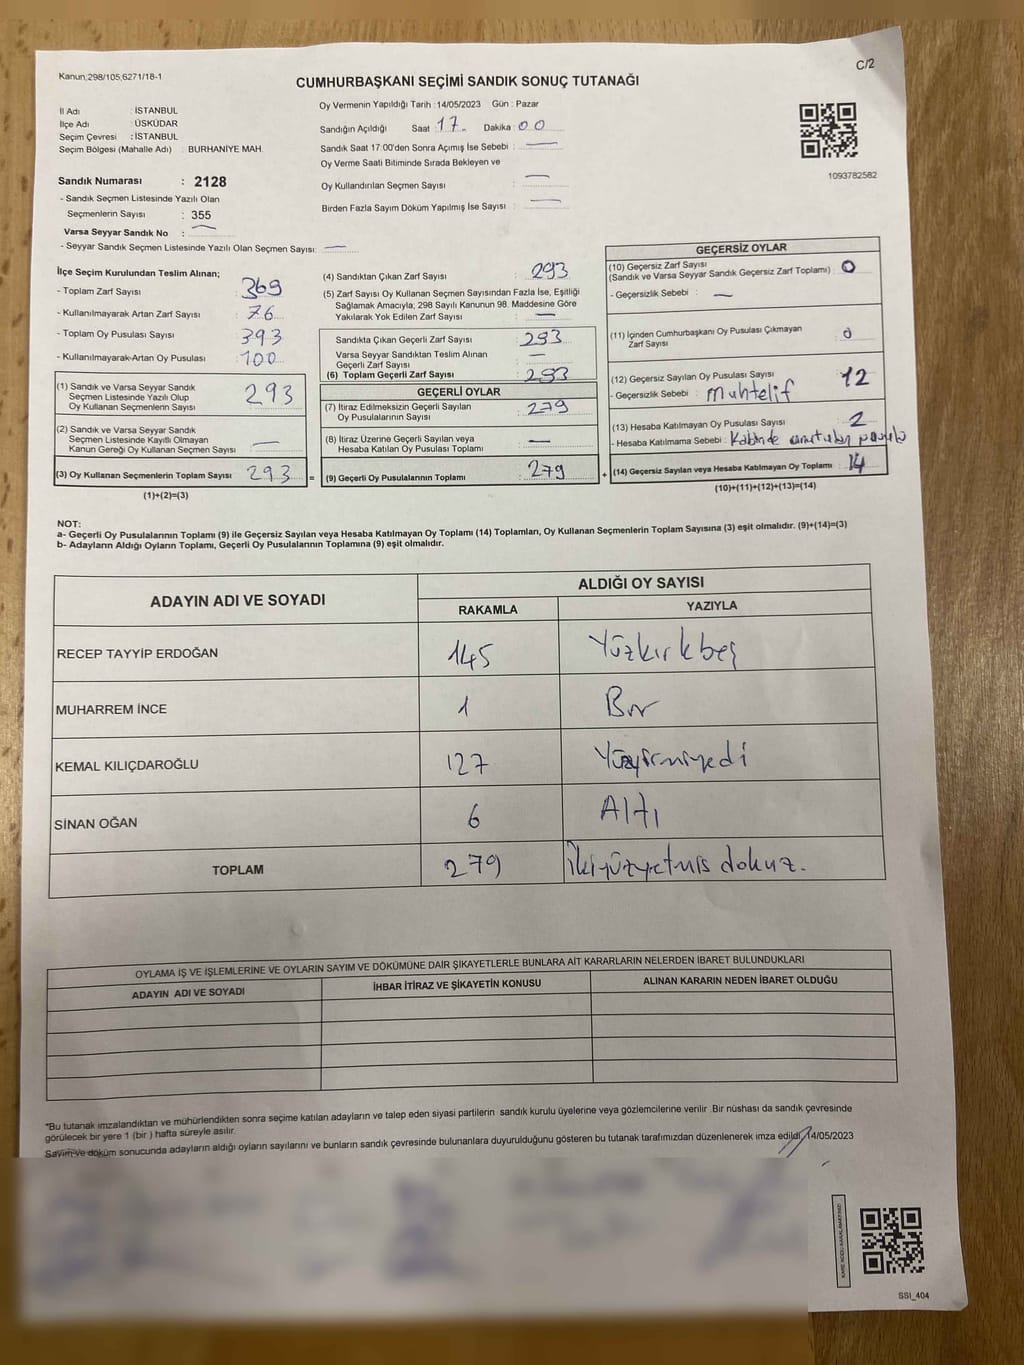 Kanun,298/105,6271/18-1
C/2
CUMHURBAŞKANI SEÇİMİ SANDIK SONUÇ TUTANAĞI
İl Adı : İSTANBUL
İlçe Adı : ÜSKÜDAR
Seçim Çevresi : İSTANBUL
Seçim Bölgesi (Mahalle Adı) : BURHANİYE MAH.
Sandık Numarası : 2128
- Sandık Seçmen Listesinde Yazılı Olan
Seçmenlerin Sayısı : 355
Varsa Seyyar Sandık No : —
- Seyyar Sandık Seçmen Listesinde Yazılı Olan Seçmen Sayısı: —
Oy Vermenin Yapıldığı Tarih : 14/05/2023 Gün : Pazar
Sandığın Açıldığı Saat : 17 Dakika : 00
Sandık Saat 17.00'den Sonra Açımış İse Sebebi : —
Oy Verme Saati Bitiminde Sırada Bekleyen ve
Oy Kullandırılan Seçmen Sayısı : —
Birden Fazla Sayım Döküm Yapılmış İse Sayısı : —
1093782582
İlçe Seçim Kurulundan Teslim Alınan;
- Toplam Zarf Sayısı : 369
- Kullanılmayarak Artan Zarf Sayısı : 76
- Toplam Oy Pusulası Sayısı : 393
- Kullanılmayarak Artan Oy Pusulası : 100
(1) Sandık ve Varsa Seyyar Sandık
Seçmen Listesinde Yazılı Olup
Oy Kullanan Seçmenlerin Sayısı : 293
(2) Sandık ve Varsa Seyyar Sandık
Seçmen Listesinde Kayıtlı Olmayan
Kanun Gereği Oy Kullanan Seçmen Sayısı : —
(3) Oy Kullanan Seçmenlerin Toplam Sayısı : 293 =
(1)+(2)=(3)
(4) Sandıktan Çıkan Zarf Sayısı : 293
(5) Zarf Sayısı Oy Kullanan Seçmen Sayısından Fazla İse, Eşitliği
Sağlamak Amacıyla; 298 Sayılı Kanunun 98. Maddesine Göre
Yakılarak Yok Edilen Zarf Sayısı : —
Sandıkta Çıkan Geçerli Zarf Sayısı : 293
Varsa Seyyar Sandıktan Teslim Alınan
Geçerli Zarf Sayısı : —
(6) Toplam Geçerli Zarf Sayısı : 293
GEÇERLİ OYLAR
(7) İtiraz Edilmeksizin Geçerli Sayılan
Oy Pusulalarının Sayısı : 279
(8) İtiraz Üzerine Geçerli Sayılan veya
Hesaba Katılan Oy Pusulaları Toplamı : —
(9) Geçerli Oy Pusulalarının Toplamı : 279 +
GEÇERSİZ OYLAR
(10) Geçersiz Zarf Sayısı
(Sandık ve Varsa Seyyar Sandık Geçersiz Zarf Toplamı) : 0
- Geçersizlik Sebebi : —
(11) İçinden Cumhurbaşkanı Oy Pusulası Çıkmayan
Zarf Sayısı : 0
(12) Geçersiz Sayılan Oy Pusulası Sayısı : 12
- Geçersizlik Sebebi : Muhtelif
(13) Hesaba Katılmayan Oy Pusulası Sayısı : 2
- Hesaba Katılmama Sebebi : Kabinde unutulan pusula
(14) Geçersiz Sayılan veya Hesaba Katılmayan Oy Toplamı : 14
(10)+(11)+(12)+(13)=(14)
NOT:
a- Geçerli Oy Pusulalarının Toplamı (9) ile Geçersiz Sayılan veya Hesaba Katılmayan Oy Toplamı (14) Toplamları, Oy Kullanan Seçmenlerin Toplam Sayısına (3) eşit olmalıdır. (9)+(14)=(3)
b- Adayların Aldığı Oyların Toplamı, Geçerli Oy Pusulalarının Toplamına (9) eşit olmalıdır.
ADAYIN ADI VE SOYADI
ALDIĞI OY SAYISI
RAKAMLA YAZIYLA
RECEP TAYYİP ERDOĞAN 145 Yüzkırkbeş
MUHARREM İNCE 1 Bir
KEMAL KILIÇDAROĞLU 127 Yüzyirmiyedi
SİNAN OĞAN 6 Altı
TOPLAM 279 İkiyüzyetmiş dokuz.
OYLAMA İŞ VE İŞLEMLERİNE VE OYLARIN SAYIM VE DÖKÜMÜNE DAİR ŞİKAYETLERLE BUNLARA AİT KARARLARIN NELERDEN İBARET BULUNDUKLARI
ADAYIN ADI VE SOYADI İHBAR İTİRAZ VE ŞİKAYETİN KONUSU ALINAN KARARIN NEDEN İBARET OLDUĞU
*Bu tutanak imzalandıktan ve mühürlendikten sonra seçime katılan adayların ve talep eden siyasi partilerin sandık kurulu üyelerine veya gözlemcilerine verilir .Bir nüshası da sandık çevresinde
görülecek bir yere 1 (bir ) hafta süreyle asılır.
Sayım ve döküm sonucunda adayların aldığı oyların sayılarını ve bunların sandık çevresinde bulunanlara duyurulduğunu gösteren bu tutanak tarafımızdan düzenlenerek imza edildi. 14/05/2023
SSI_404